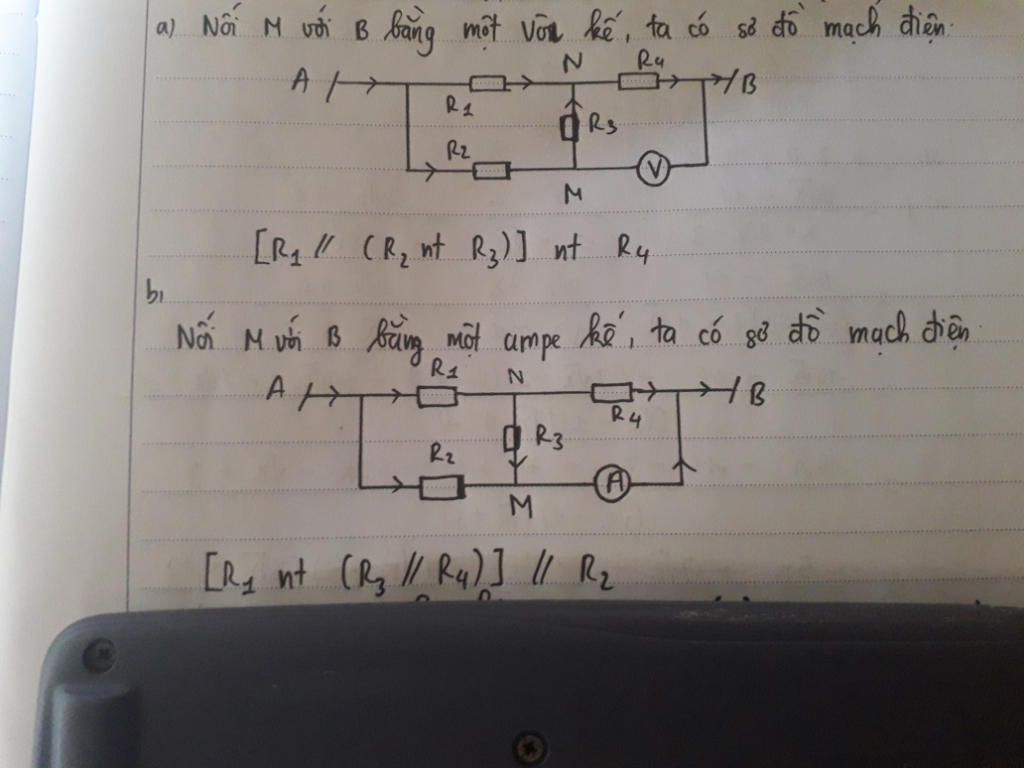 a) Nối M với B bằng một vôn kế, ta có sơ đồ mạch điện.
N R4
A B
R1
R3
R2
V
M
[R1 // (R2 nt R3)] nt R4
b,
Nối M với B bằng một ampe kế, ta có sơ đồ mạch điện.
R1 N
A B
R4
R3
R2
A
M
[R1 nt (R3 // R4)] // R2